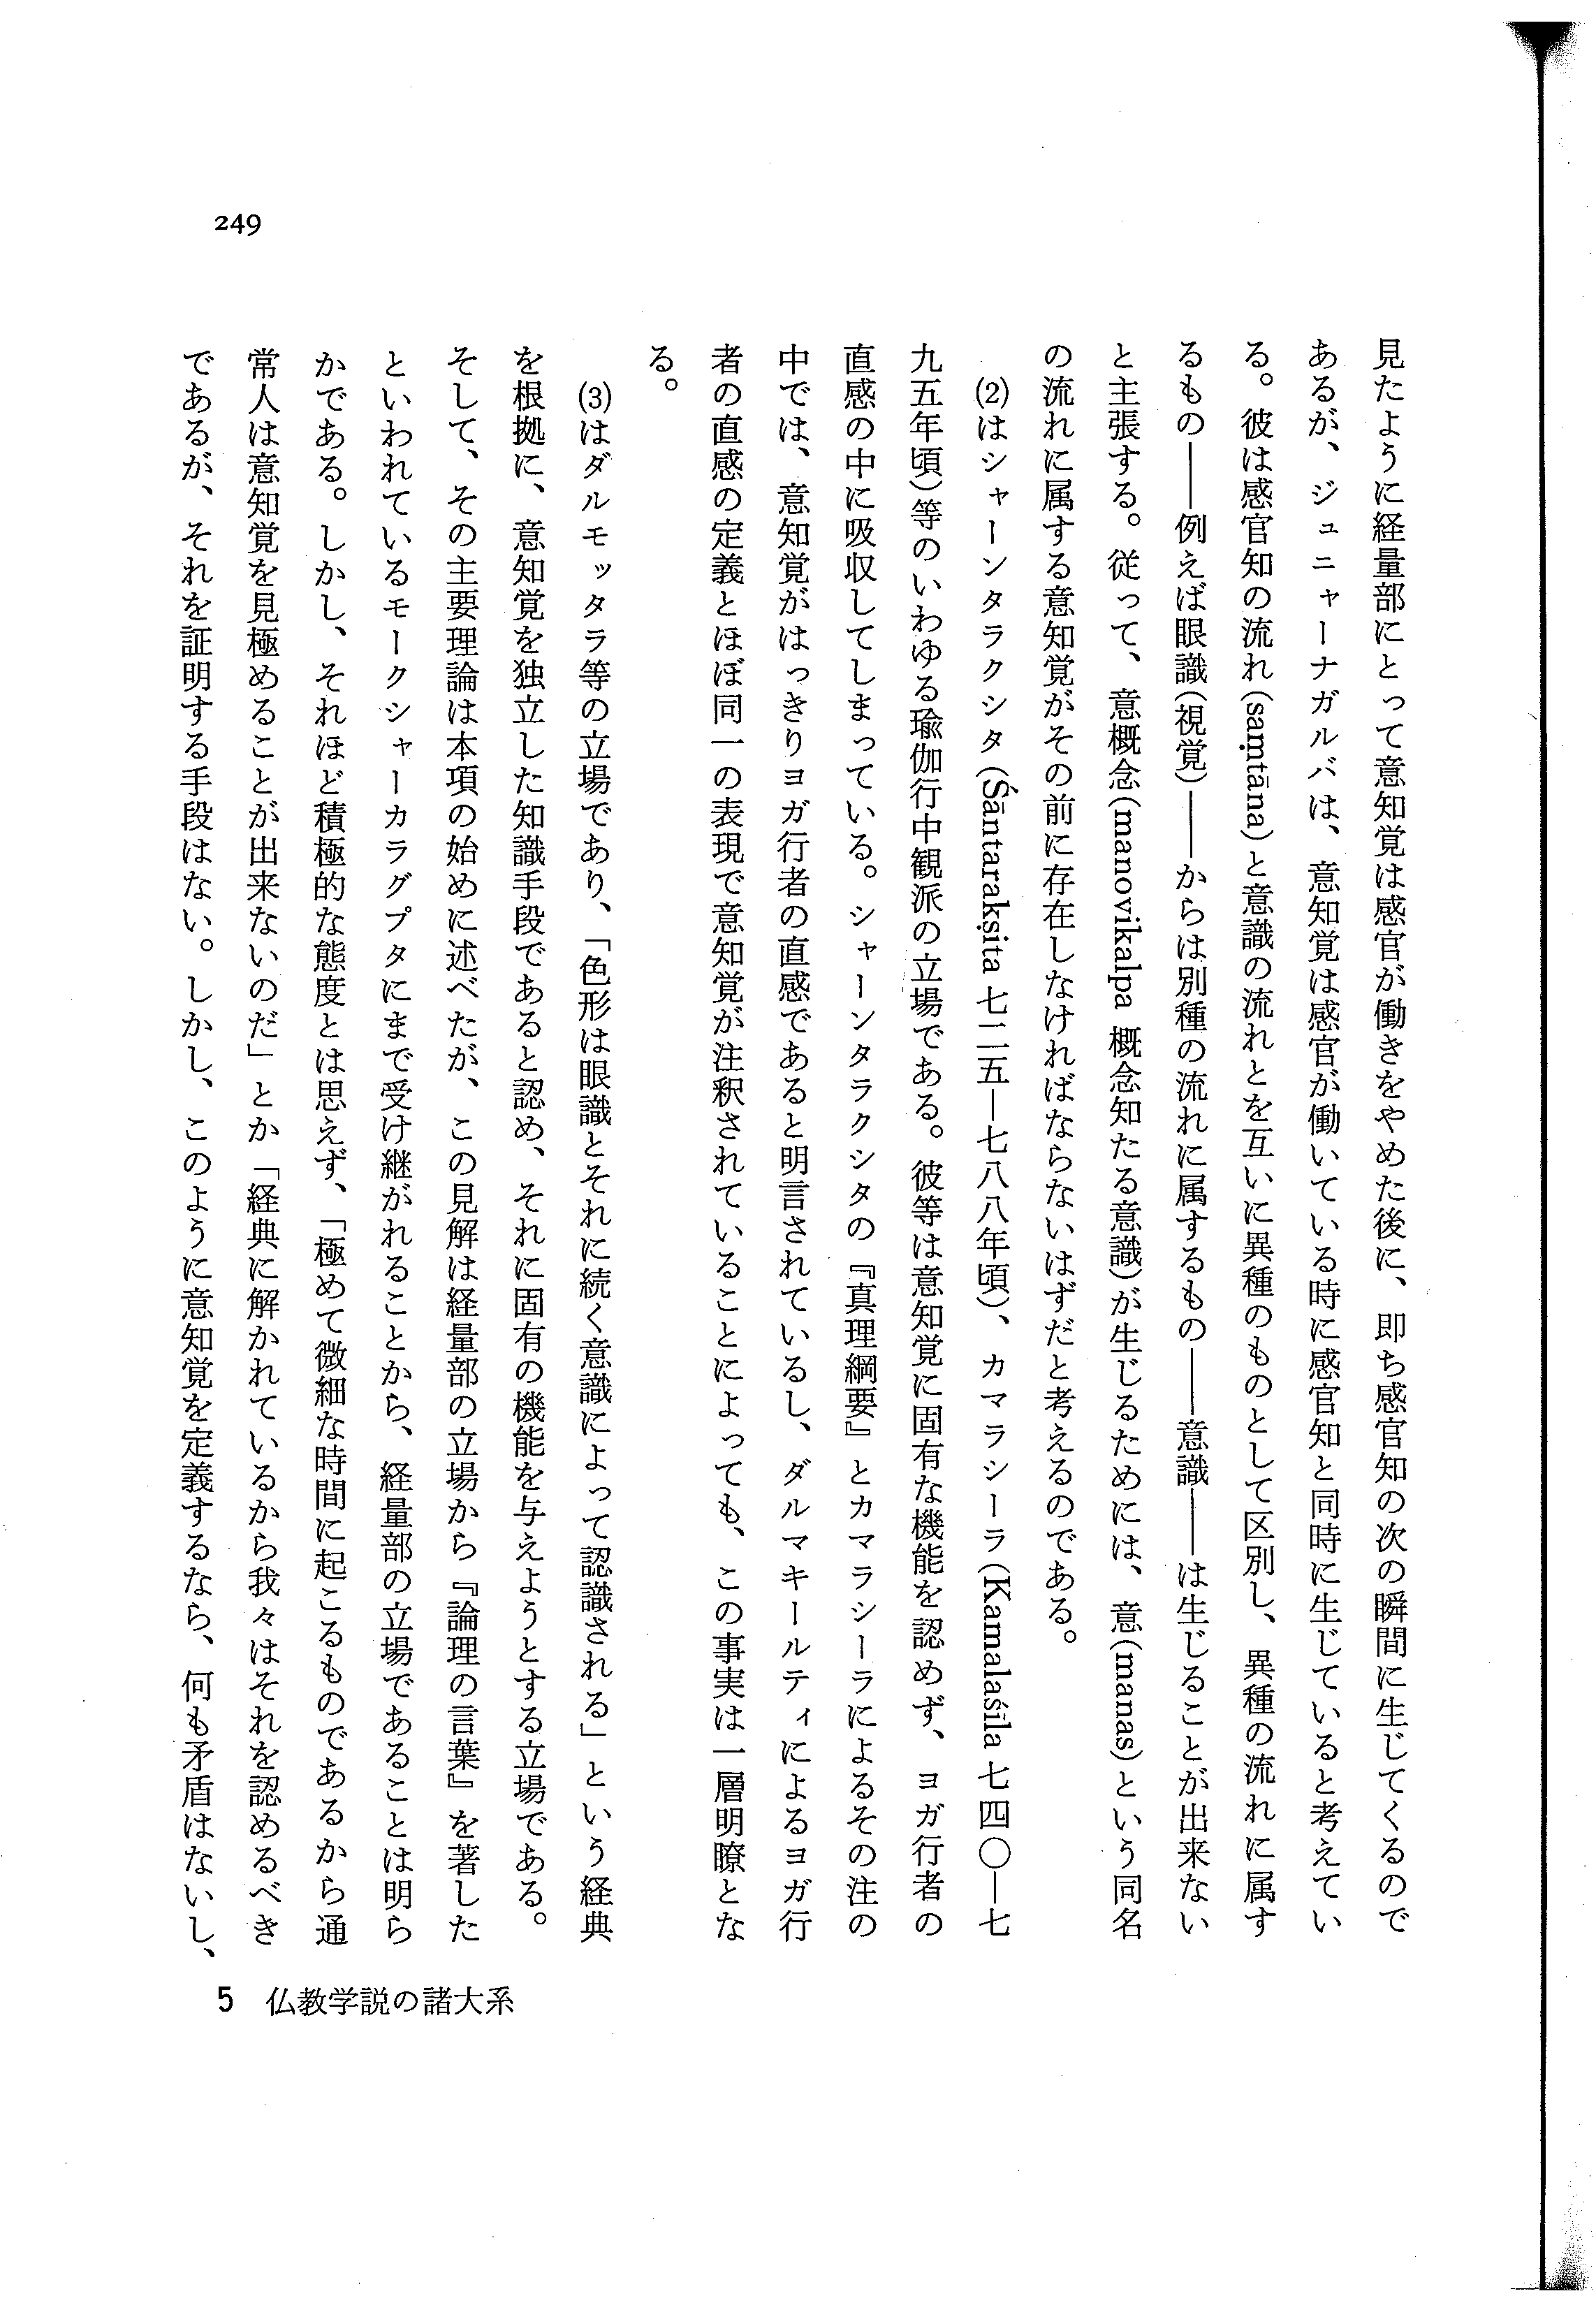 249
見たように経量部にとって意知覚は感官が働きをやめた後に、即ち感官知の次の瞬間に生じてくるので
あるが、ジュニャーナガルバは、意知覚は感官が働いている時に感官知と同時に生じていると考えてい
る。彼は感官知の流れ(saṃtāna)と意識の流れとを互いに異種のものとして区別し、異種の流れに属す
るもの――例えば眼識(視覚)――からは別種の流れに属するもの――意識――は生じることが出来ない
と主張する。従って、意概念(manovikalpa 概念知たる意識)が生じるためには、意(manas)という同名
の流れに属する意知覚がその前に存在しなければならないはずだと考えるのである。
(2)はシャーンタラクシタ(Śāntarakṣita 七二五―七八八年頃)、カマラシーラ(Kamalaśīla 七四〇―七
九五年頃)等のいわゆる瑜伽行中観派の立場である。彼等は意知覚に固有な機能を認めず、ヨガ行者の
直感の中に吸収してしまっている。シャーンタラクシタの『真理綱要』とカマラシーラによるその注の
中では、意知覚がはっきりヨガ行者の直感であると明言されているし、ダルマキールティによるヨガ行
者の直感の定義とほぼ同一の表現で意知覚が注釈されていることによっても、この事実は一層明瞭とな
る。
(3)はダルモッタラ等の立場であり、「色形は眼識とそれに続く意識によって認識される」という経典
を根拠に、意知覚を独立した知識手段であると認め、それに固有の機能を与えようとする立場である。
そして、その主要理論は本項の始めに述べたが、この見解は経量部の立場から『論理の言葉』を著した
といわれているモークシャーカラグプタにまで受け継がれることから、経量部の立場であることは明ら
かである。しかし、それほど積極的な態度とは思えず、「極めて微細な時間に起こるものであるから通
常人は意知覚を見極めることが出来ないのだ」とか「経典に解かれているから我々はそれを認めるべき
であるが、それを証明する手段はない。しかし、このように意知覚を定義するなら、何も矛盾はないし、
5 仏教学説の諸大系